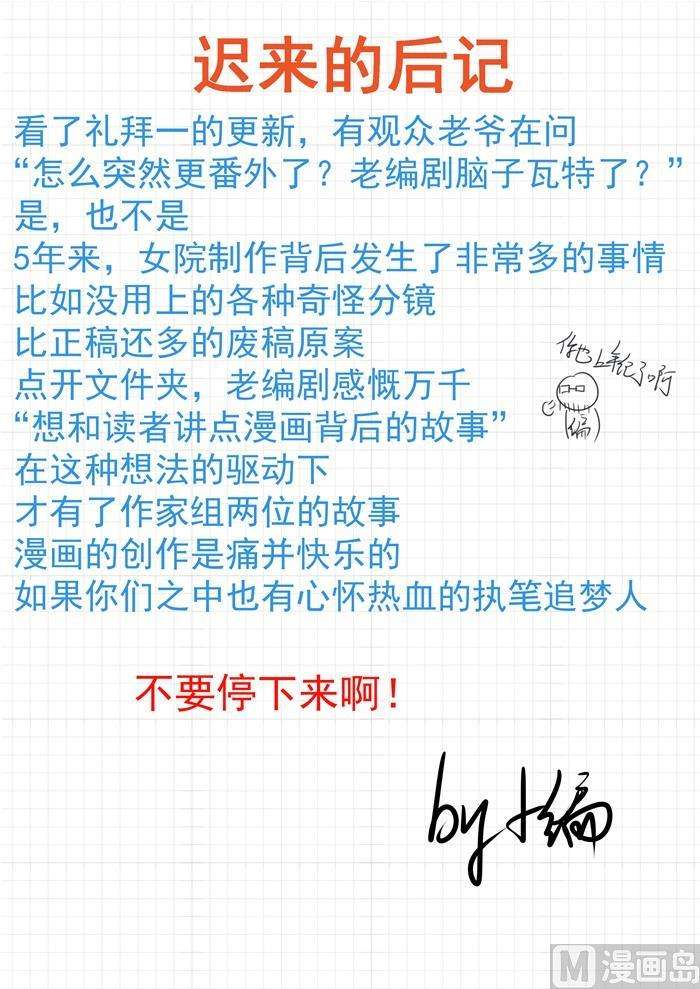 迟来的后记
看了礼拜一的更新，有观众老爷在问
“怎么突然更番外了？老编剧脑子瓦特了？”
是，也不是
5年来，女院制作背后发生了非常多的事情
比如没用上的各种奇怪分镜
比正稿还多的废稿原案
你也上年纪了啊
点开文件夹，老编剧感慨万千
“想和读者讲点漫画背后的故事”
编
在这种想法的驱动下
才有了作家组两位的故事
漫画的创作是痛并快乐的
如果你们之中也有心怀热血的执笔追梦人
不要停下来啊！
by 小编
M 漫画岛